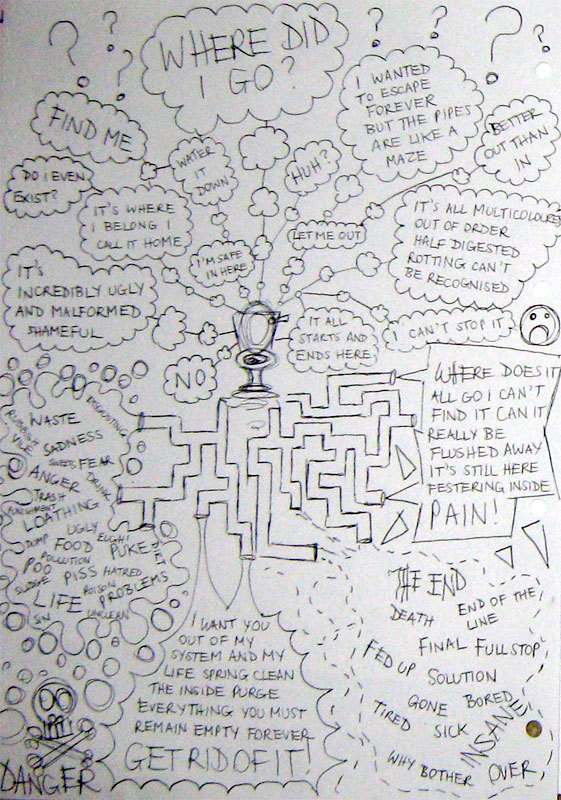 ? ? ? ? ? ?
WHERE DID
I GO?
FIND ME
WATER
IT
DOWN
HUH?
I WANTED
TO ESCAPE
FOREVER
BUT THE PIPES
ARE LIKE A
MAZE
BETTER
OUT THAN
IN
DO I EVEN
EXIST?
IT'S WHERE
I BELONG I
CALL IT HOME
I'M SAFE
IN HERE
LET ME OUT
IT'S ALL MULTICOLOURED
OUT OF ORDER
HALF DIGESTED
ROTTING CAN'T
BE RECOGNISED
IT'S
INCREDIBLY UGLY
AND MALFORMED
SHAMEFUL
NO
IT ALL
STARTS AND
ENDS HERE
I CAN'T STOP IT
WHERE DOES IT
ALL GO I CAN'T
FIND IT CAN IT
REALLY BE
FLUSHED AWAY
IT'S STILL HERE
FESTERING INSIDE
PAIN!
DISGUSTING
RUBBISH
WASTE
VILE
SADNESS
SWEETS
FEAR
ANGER
DRINK
TRASH
PUNISHMENT
LOATHING
UGLY
DUMP
FOOD
EUGH!
PUKE
DIET
POO
POLLUTION
PISS
HATRED
SLUDGE
POISON
PROBLEMS
LIFE
SIN
UNCLEAN
DANGER
I WANT YOU
OUT OF MY
SYSTEM AND MY
LIFE SPRING CLEAN
THE INSIDE PURGE
EVERYTHING YOU MUST
REMAIN EMPTY FOREVER
GET RID OF IT!
THE END
DEATH
END OF THE
LINE
FINAL FULL STOP
FED UP
SOLUTION
GONE
BORED
TIRED
SICK
INSANE
WHY BOTHER
OVER